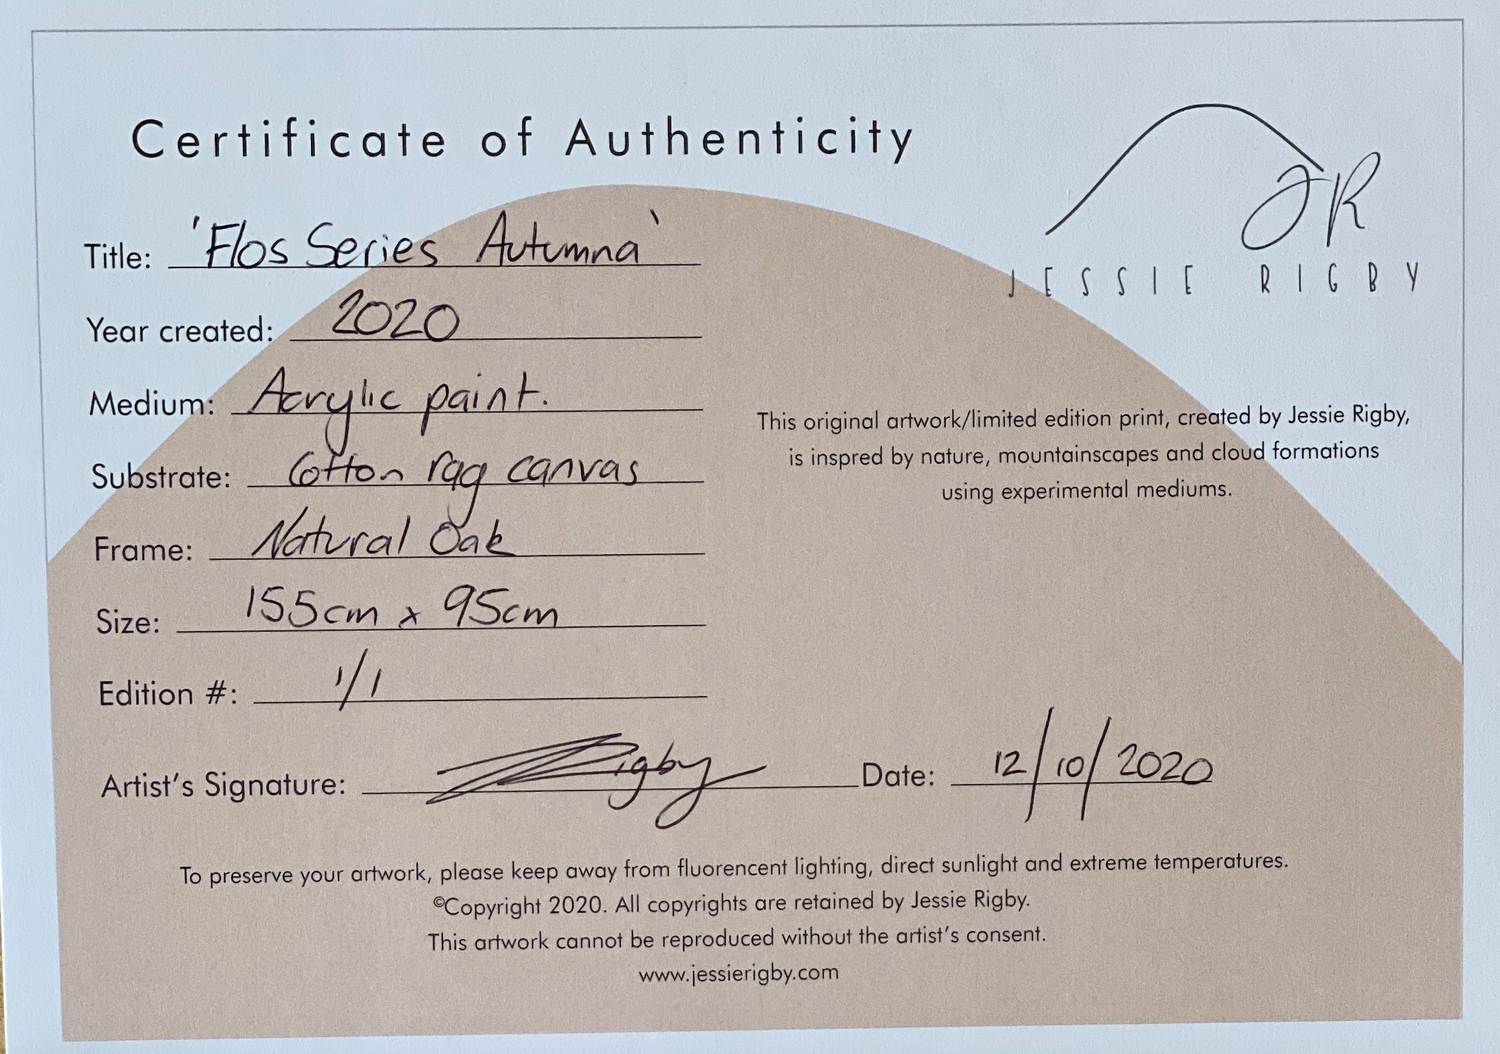 Certificate of Authenticity
JR
JESSIE RIGBY
Title: 'Flos Series Autumna'
Year created: 2020
Medium: Acrylic paint.
Substrate: Cotton rag canvas
Frame: Natural Oak
Size: 155cm x 95cm
Edition #: 1/1
This original artwork/limited edition print, created by Jessie Rigby,
is inspred by nature, mountainscapes and cloud formations
using experimental mediums.
Artist's Signature: Rigby Date: 12/10/2020
To preserve your artwork, please keep away from fluorencent lighting, direct sunlight and extreme temperatures.
©Copyright 2020. All copyrights are retained by Jessie Rigby.
This artwork cannot be reproduced without the artist's consent.
www.jessierigby.com